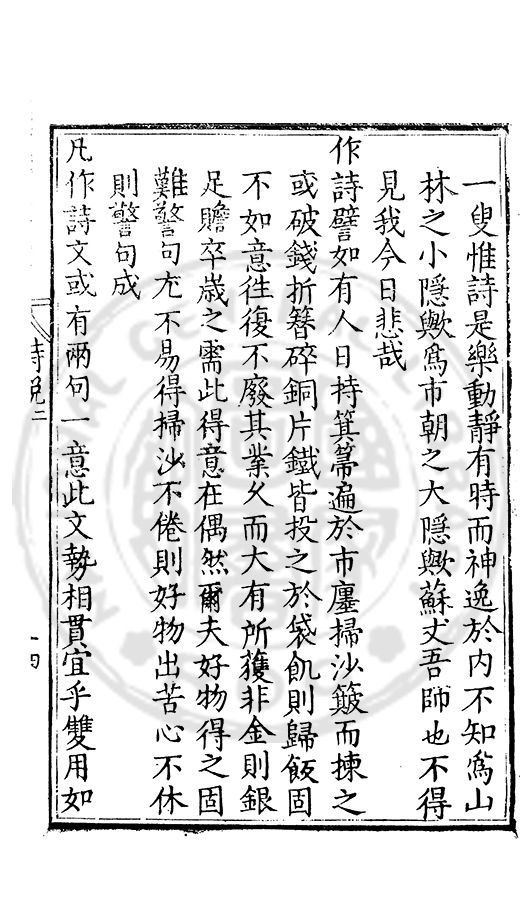 一叟惟詩是樂動靜有時而神逸於内不知為山
林之小隱歟為市朝之大隱歟蘇丈吾師也不得
見我今日悲哉
作詩譬如有人日持箕箒遍於市廛掃沙簸而揀之
或破錢折簪碎銅片鐵皆投之於袋飢則歸飯固
不如意往復不廢其業久而大有所獲非金則銀
足贍卒歲之需此得意在偶然爾夫好物得之固
難警句尤不易得掃沙不倦則好物出苦心不休
則警句成
凡作詩文或有兩句一意此文勢相貫宜乎雙用如
詩說二
十四